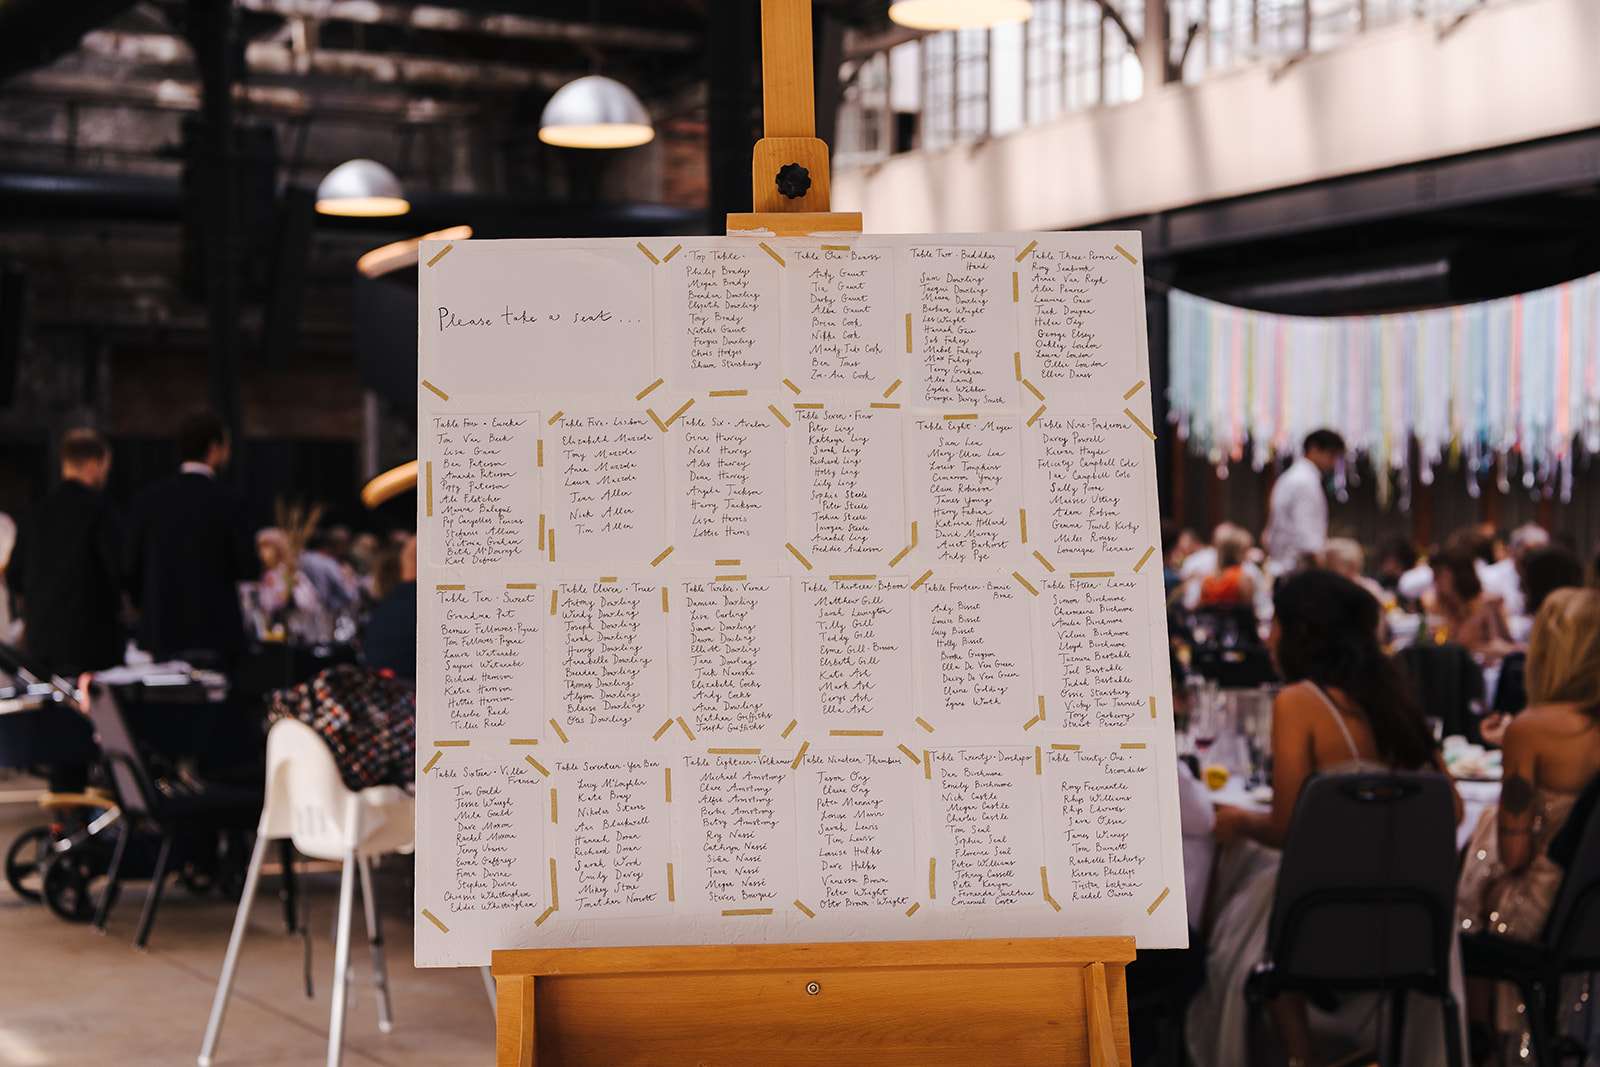 Please take a seat ...
· Top Table ·
Philip Brady
Megan Brady
Brendan Dowling
Elspeth Dowling
Tony Brady
Natalie Gaunt
Fergus Dowling
Chris Hodges
Shaun Stansbury
Table One ·
Andy Gaunt
Tia Gaunt
Darby Gaunt
Alba Gaunt
Bryan Cook
Nikki Cook
Mandy Jade Cook
Ben Jones
Zoe-Ava Cook
Table Two · Buddhas
Hand
Sam Dowling
Jacqui Dowling
Maura Dowling
Barbara Wright
Les Wright
Hannah Gaw
Seb Fahey
Mabel Fahey
Max Fahey
Terry Graham
Alex Lamb
Lydia Webber
Georgia Davey Smith
Table Three · Perrine
Rory Seabrook
Annie Van Ryyd
Alex Pearce
Laurine Gaw
Jack Dougan
Helen Ody
George Elsey
Oakley London
Laura London
Ollie London
Ellen Danes
Table Four · Eureka
Jon Van Beek
Lisa Gava
Ben Paterson
Amanda Paterson
Poppy Paterson
Ali Fletcher
Marina Balagué
Pep Canyelles Pericas
Stefanie Allum
Victoria Graham
Beth McDonogh
Karl Defoee
Table Five · Lisbon
Elizabeth Mazzola
Tony Mazzola
Anna Mazzola
Laura Mazzola
Jean Allen
Nick Allen
Tim Allen
Table Six · Avalon
Gina Harvey
Neil Harvey
Alex Harvey
Dena Harvey
Angela Jackson
Harry Jackson
Lisa Harris
Lottie Harris
Table Seven · Fino
Peter Ling
Kathryn Ling
Sarah Ling
Richard Ling
Holly Ling
Lily Ling
Sophie Steele
Peter Steele
Joshua Steele
Imogen Steele
Annabel Ling
Freddie Anderson
Table Eight · Meyer
Sam Lea
Mary-Ellen Lea
Louis Tompkins
Cameron Young
Clare Robinson
James Young
Harry Fabian
Katrina Holland
David Murray
Avent Barhorst
Andy Pye
Table Nine · Ponderosa
Davey Powell
Kieran Hayde
Felicity Campbell Cole
Ian Campbell Cole
Sally Pirie
Maisie Uting
Adam Robson
Gemma Twill Kirky
Miles Rouse
Loranque Pienaar
Table Ten · Sweet
Grandma Pat
Bernie Fellowes-Prynne
Tom Fellowes-Prynne
Laura Watanabe
Sayuri Watanabe
Richard Harrison
Katie Harrison
Hattie Harrison
Charlie Reed
Tillie Reed
Table Eleven · True
Antony Dowling
Wendy Dowling
Joseph Dowling
Sarah Dowling
Henry Dowling
Annabelle Dowling
Brendan Dowling
Thomas Dowling
Alyson Dowling
Blaise Dowling
Otis Dowling
Table Twelve · Verna
Damien Dowling
Lisa Carling
Simon Dowling
Dawn Dowling
Elliott Dowling
Jane Dowling
Jack Naroski
Elizabeth Cocks
Andy Cocks
Anna Dowling
Nathan Griffiths
Joseph Griffiths
Table Thirteen · Baboon
Matthew Gill
Sarah Lewington
Tilly Gill
Teddy Gill
Esme Gill-Bisson
Elsbeth Gill
Kate Ash
Mark Ash
Gage Ash
Ella Ash
Table Fourteen · Bonnie
Brae
Andy Bisset
Louise Bisset
Lucy Bisset
Holly Bisset
Brooke Grigson
Ella De Vere Green
Daisy De Vere Green
Elaine Golding
Lynne Worth
Table Fifteen · Lamas
Simon Birchmore
Charmaine Birchmore
Amelia Birchmore
Valerie Birchmore
Lloyd Birchmore
Tazmira Bastable
Juil Bastable
Judah Bastable
Ossie Stansbury
Vicky Tur Tarouch
Tony Carberry
Stuart Pearce
Table Sixteen · Villa
Franca
Jim Gould
Jessie Waugh
Mila Gould
Dave Moxon
Rachel Moxon
Jenny Usher
Ewan Gaffney
Fiona Devine
Stephen Devine
Chrissie Whittingham
Eddie Whittingham
Table Seventeen · Yen Ben
Lucy McLaughlin
Kate Bray
Nikolai Storrs
Aar Blackwell
Hannah Doran
Richard Doran
Sarah Wood
Emily Davey
Mikey Stone
Jonathan Norcott
Table Eighteen · Volkamer
Michael Armstrong
Clare Armstrong
Alfie Armstrong
Bertie Armstrong
Betsy Armstrong
Roy Nassé
Cathryn Nassé
Siân Nassé
Tara Nassé
Megan Nassé
Steven Bourque
Table Nineteen · Thimbui
Jason Ong
Clare Ong
Peter Manning
Louise Mavin
Sarah Lewis
Tim Lewis
Louise Hulks
Dave Hulks
Vanessa Brown
Peter Wright
Otto Brown-Wright
Table Twenty · Dorshapo
Dan Birchmore
Emily Birchmore
Nick Castle
Megan Castle
Charlie Castle
Tom Seal
Sophia Seal
Florence Seal
Peter Williams
Johnny Cassell
Pete Kenyon
Fernanda
Emanuel Costa
Table Twenty One ·
Escondido
Rory Freemantle
Rhys Williams
Rhys Edwards
Sara Olsen
James Winey
Tom Burnett
Rachelle Flaherty
Kieran Phillips
Tristan Lochman
Rachel Owens